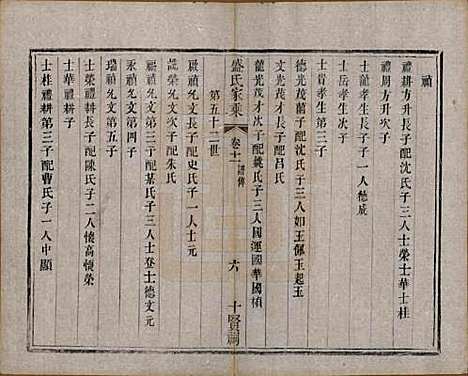 禎
禮耕方升長子配沈氏子三人士榮士華士桂
禮周方升次子
士龍孝生長子子一人德威
士岳孝生次子
士官孝生第三子
德光茂蘭子配沈氏子三人如玉佩玉起玉
文光茂才子配呂氏
龍光茂才次子配魏氏子三人國運國華國楨
盛氏家乘
卷十
譜傳
六
十賢祠
第五十二世
禎允文長子配史氏子一人士元
榮允文次子配朱氏
禎允文第三子配某氏子三人士登士德文元
發禎允文第四子
瑞禎允文第五子
士榮禮耕長子配陳氏子二人懷高懷榮
士華禮耕子
士桂禮耕第三子配曹氏子一人中顯